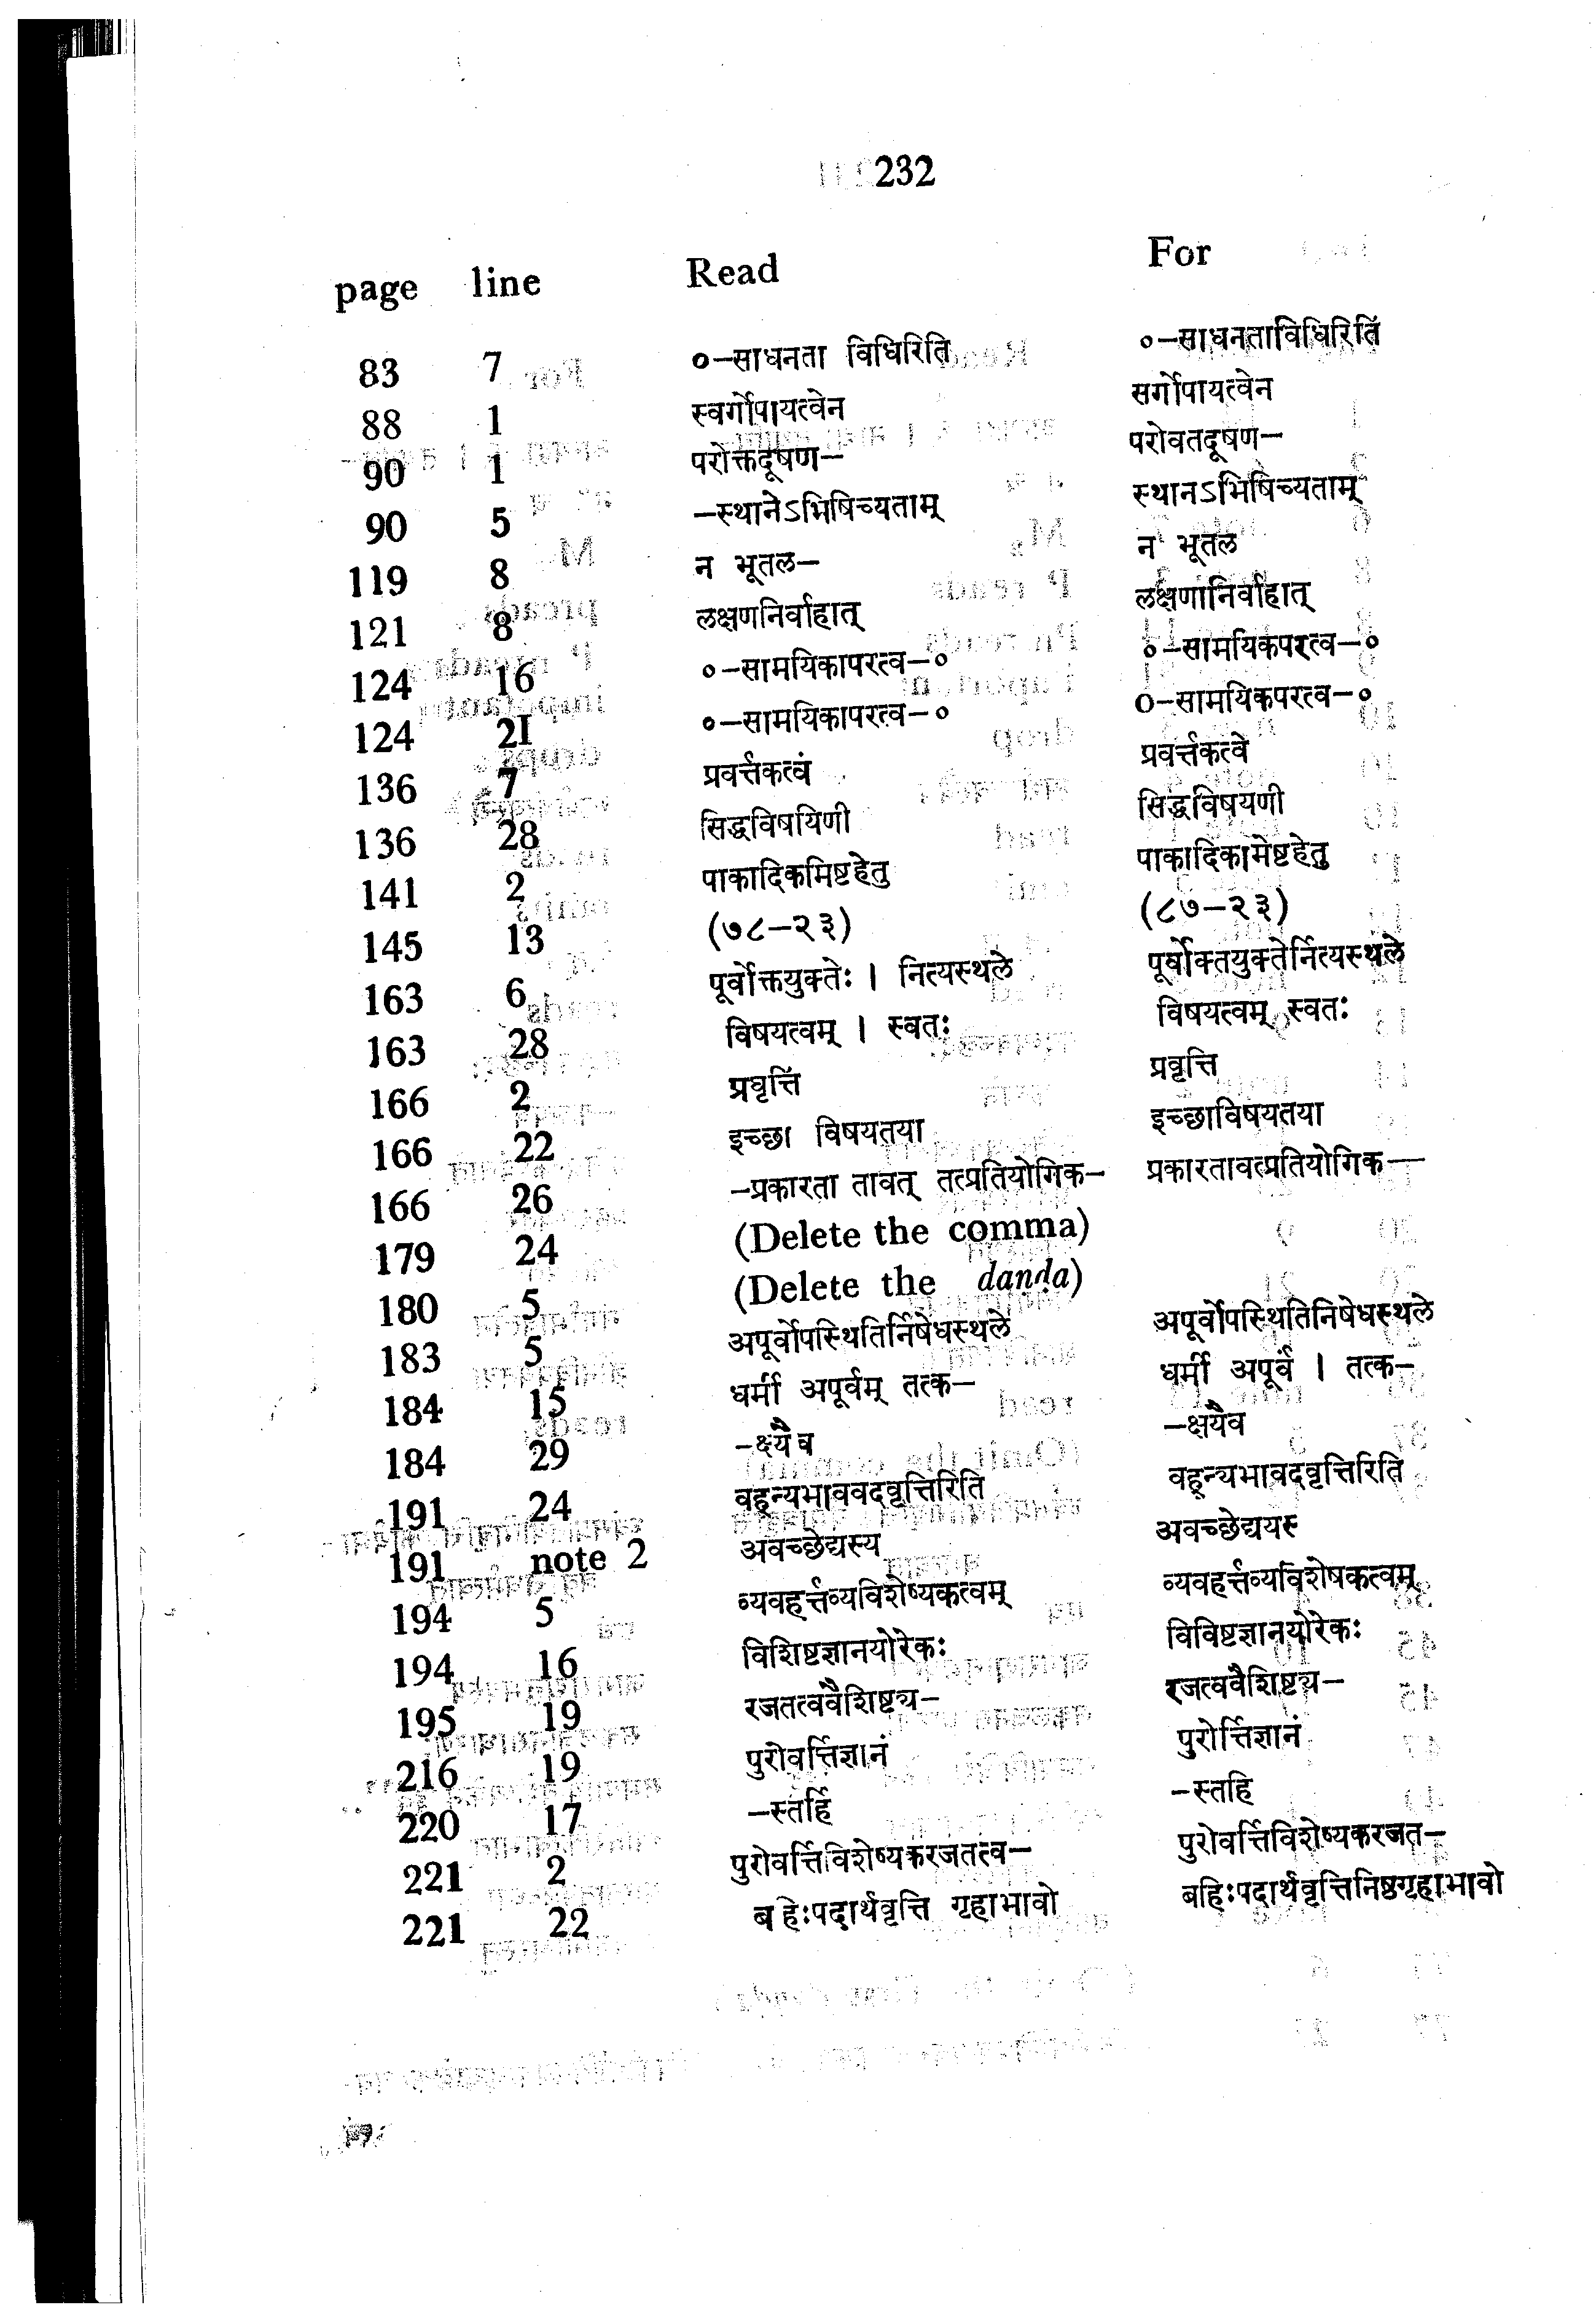 232
page line Read For
83 7 ०–साधनता विधिरिति ०–साधनताविधिरिति
88 1 स्वर्गोपायत्वेन सर्गोपायत्वेन
90 1 परोक्तदूषण– परोवतदूषण–
90 5 –स्थानेऽभिषिच्यताम् स्थानऽभिषिच्यताम्
119 8 न भूतल– न भूतल
121 8 लक्षणनिर्वाहात् लक्षणानिर्वाहात्
124 16 ०–सामयिकापरत्व–० ०–सामयिकपरत्व–०
124 21 ०–सामयिकापरत्व–० ०–सामयिकपरत्व–०
136 7 प्रवर्त्तकत्वं प्रवर्त्तकत्वे
136 28 सिद्धविषयिणी सिद्धविषयणी
141 2 पाकादिकमिष्टहेतु पाकादिकामेष्टहेतु
145 13 (७८–२३) (८७–२३)
163 6 पूर्वोक्तयुक्तेः । नित्यस्थले पूर्षोक्तयुक्तेर्नित्यस्थले
163 28 विषयत्वम् । स्वतः विषयत्वम् स्वतः
166 2 प्रवृत्तिं प्रवृत्ति
166 22 इच्छा विषयतया इच्छाविषयतया
166 26 –प्रकारता तावत् तत्प्रतियोगिक– प्रकारतावत्प्रतियोगिक—
179 24 (Delete the comma)
180 5 (Delete the danḍa)
183 5 अपूर्वोपस्थितिर्निषेधस्थले अपूर्वोपस्थितिनिषेधस्थले
184 15 धर्मी अपूर्वम् तत्क– धर्मी अपूर्वं । तत्क–
184 29 –क्ष्यैव –क्षयैव
191 24 वह्न्यभाववदवृत्तिरिति वह्न्यभावदवृत्तिरिति
191 note 2 अवच्छेद्यस्य अवच्छेद्ययस
194 5 व्यवहर्त्तव्यविशेष्यकत्वम् व्यवहर्त्तव्यविशेषकत्वम्
194 16 विशिष्टज्ञानयोरेकः विविष्टज्ञानयोरेकः
195 19 रजतत्ववैशिष्ट्य– रजत्ववैशिष्ट्य–
216 19 पुरोवर्त्तिज्ञानं पुरोर्त्तिज्ञानं
220 17 –स्तर्हि –स्तहि
221 2 पुरोवर्त्तिविशेष्यकरजतत्व– पुरोवर्त्तिविशेष्यकरजत–
221 22 बहिःपदार्थवृत्ति गृहाभावो बहिःपदार्थवृत्तिनिष्ठगृहाभावो